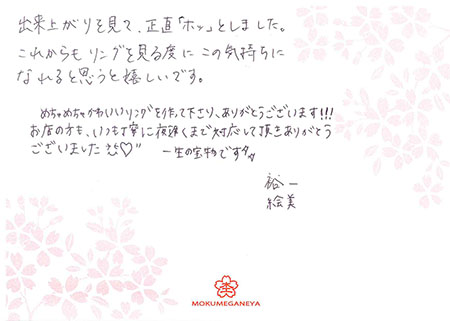 出来上がりを見て、正直「ホッ」としました。
これからも リングを見る度に この気持ちに
なれると思うと嬉しいです。
めちゃめちゃかわいいリングを作って下さり、ありがとうございます!!!
お店の方も、いつも丁寧に夜遅くまで対応して頂きありがとう
ございました♡” 一生の宝物です
裕一
絵美
MOKUMEGANEYA